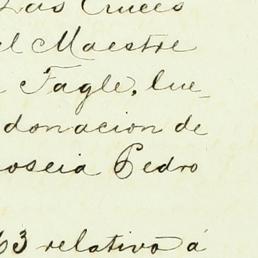 Las Cruces
el Maestre
Tagle, lue_
donacion de
poseia Pedro
63 relativo á